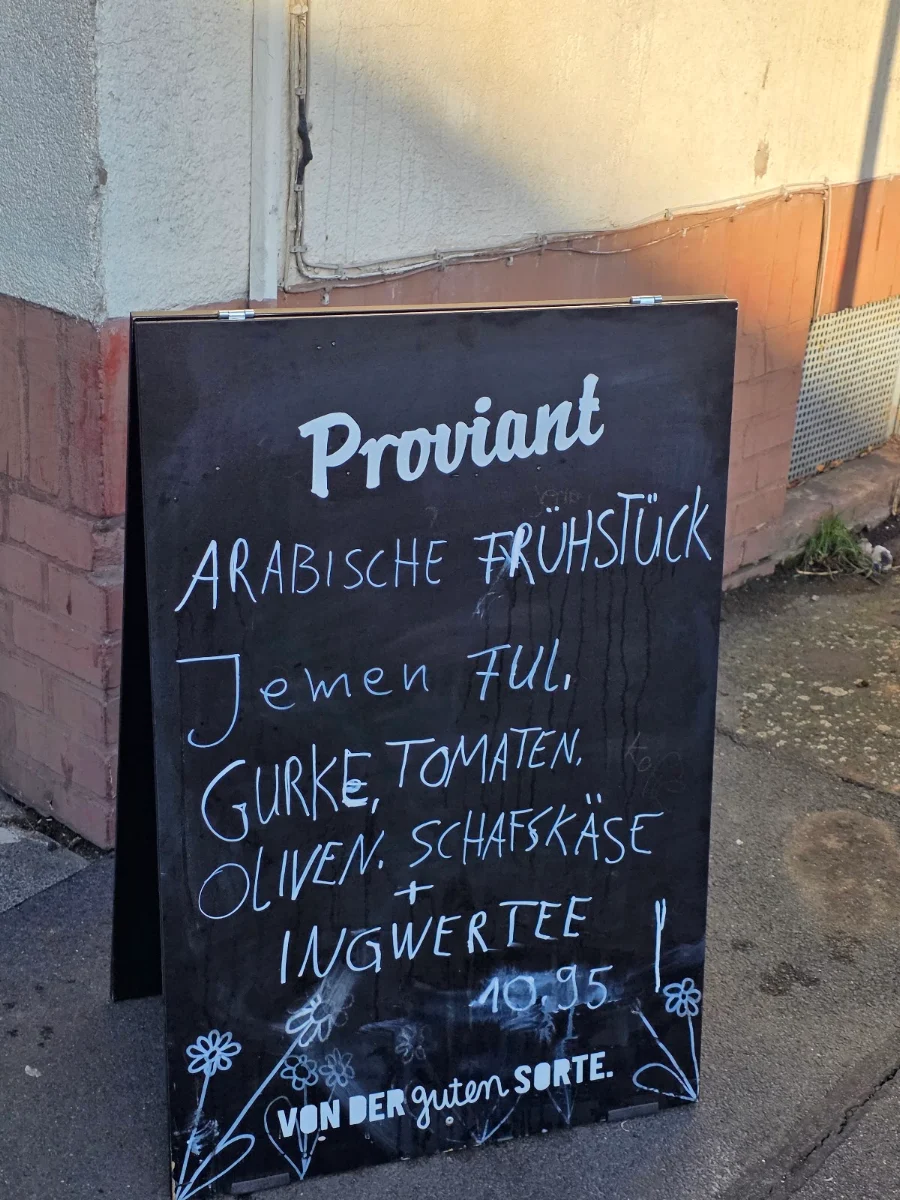 Proviant
ARABISCHE FRÜHSTÜCK
Jemen FUL,
GURKE, TOMATEN,
OLIVEN. SCHAFSKÄSE
+
INGWERTEE
10,95
VON DER guten SORTE.